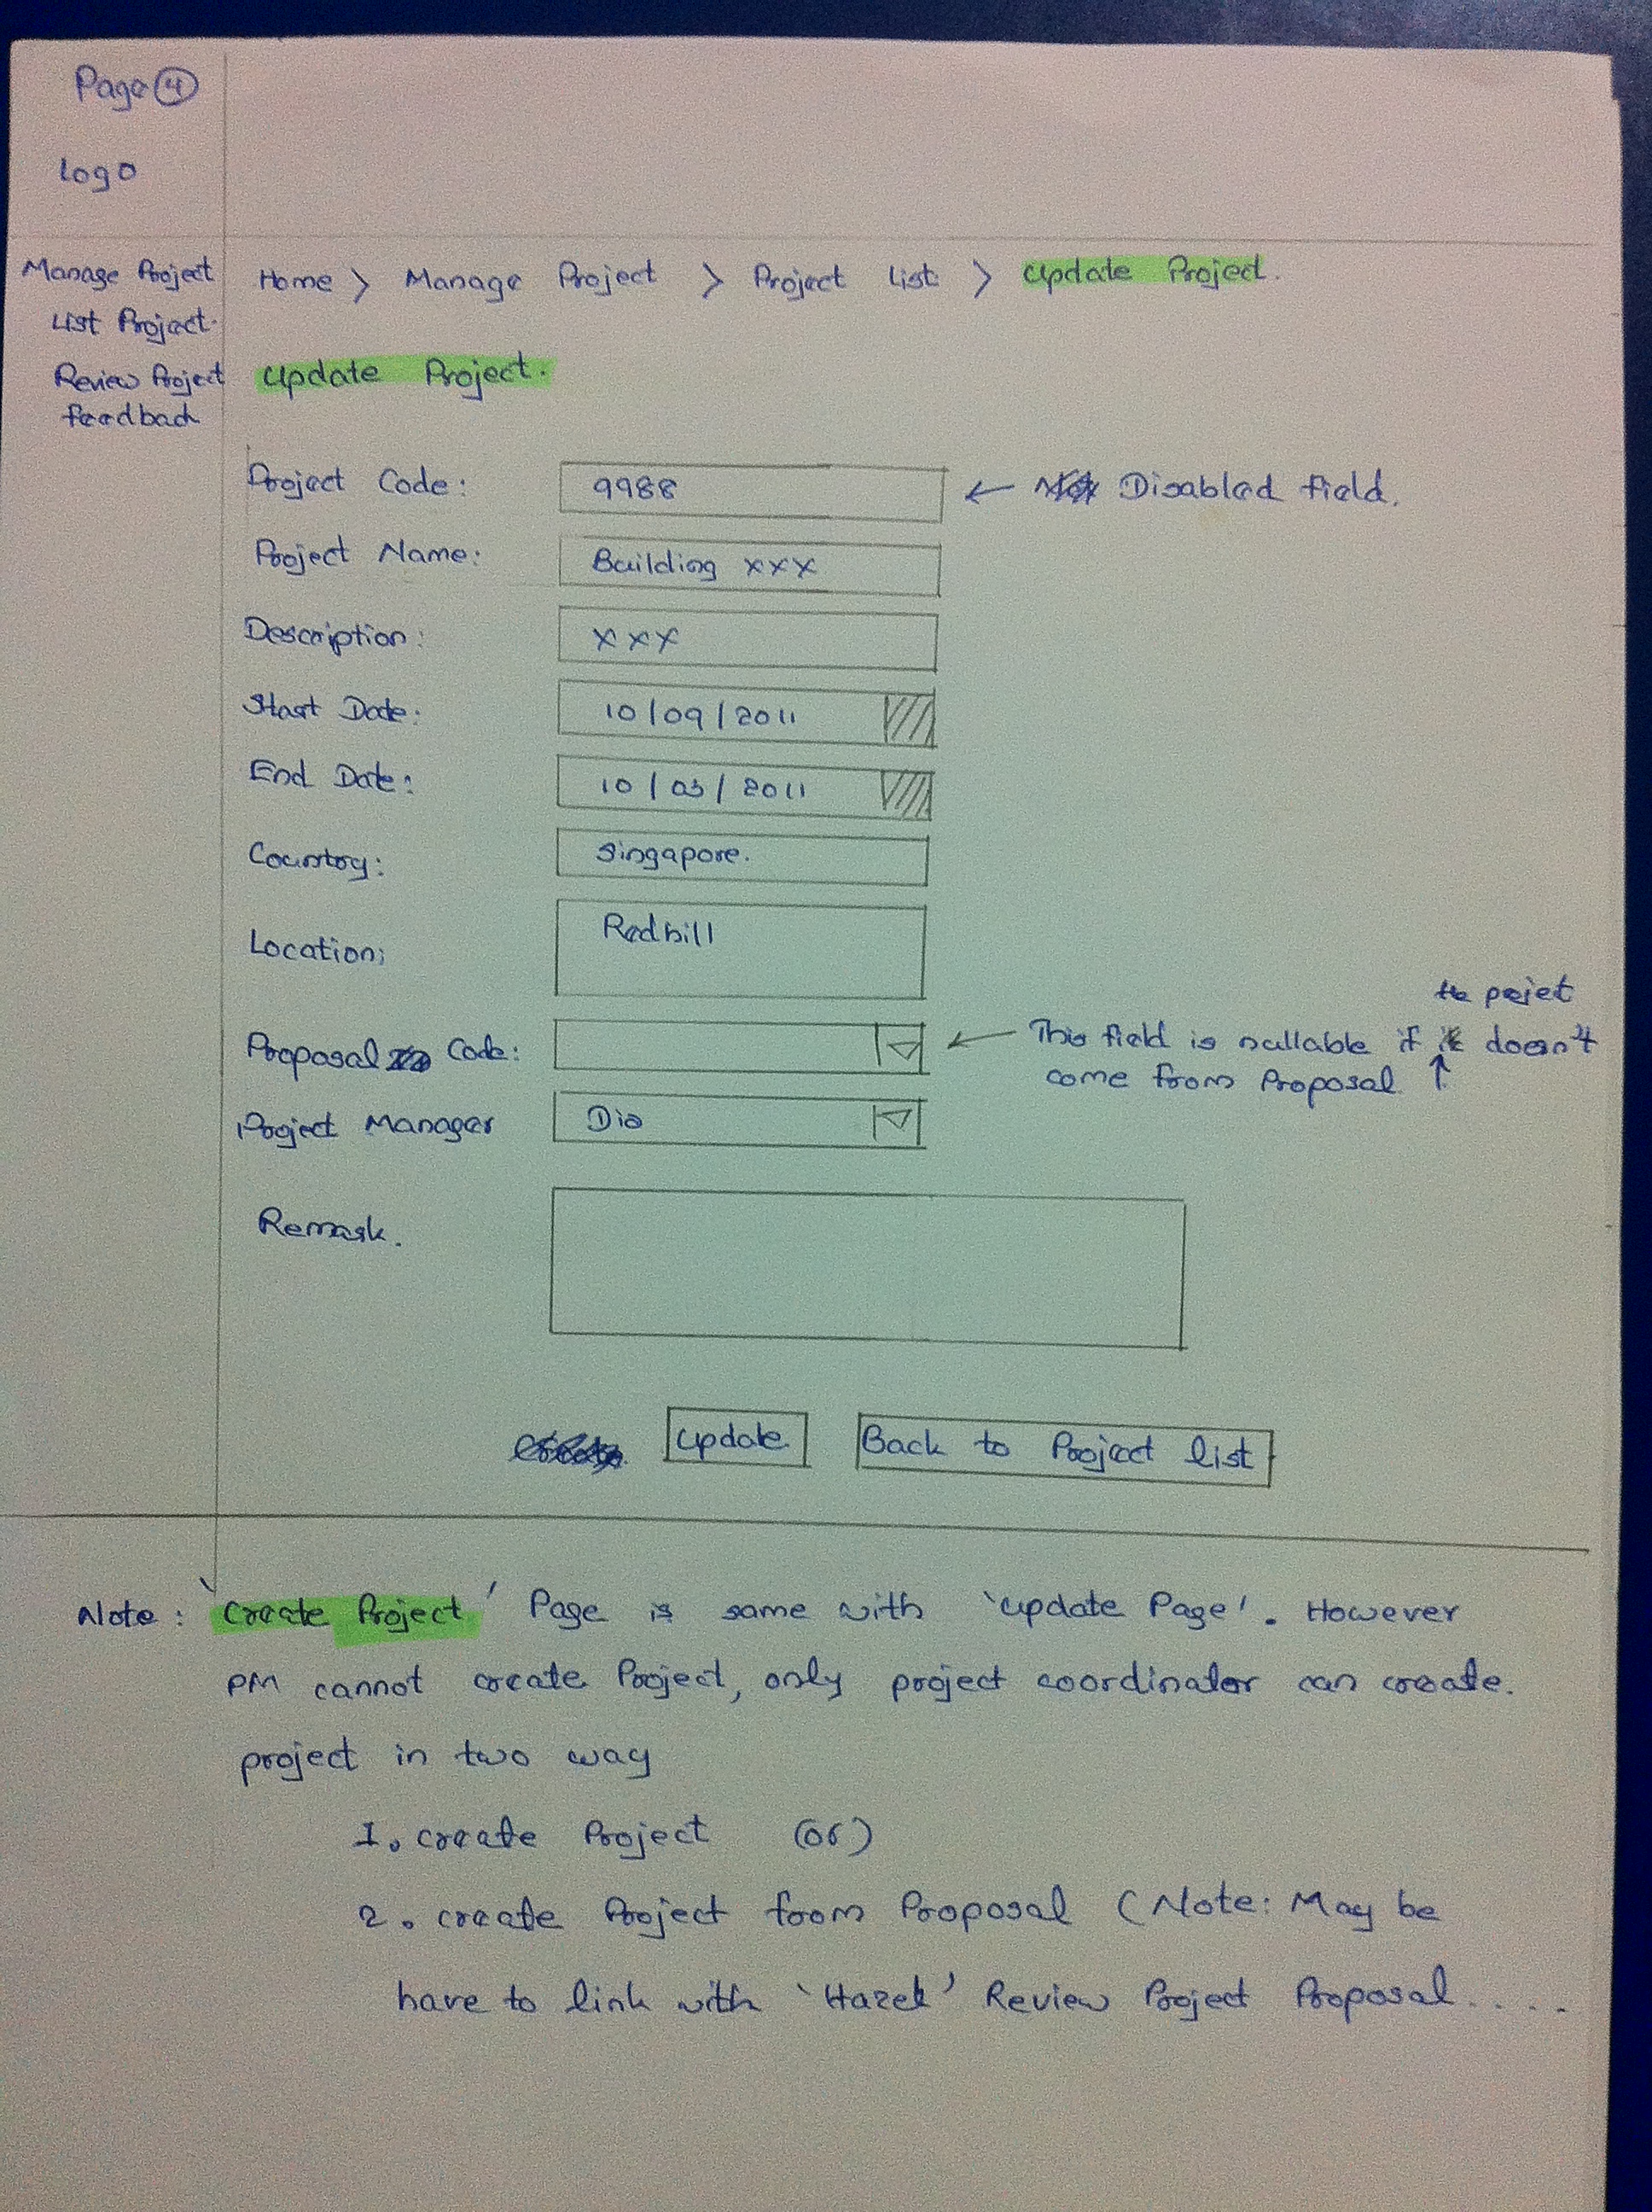 Page 4
logo
Manage Project
List Project.
Review Project
feedback
Home > Manage Project > Project List > Update Project.
Update Project.
Project Code: 9988 ← Disabled field.
Project Name: Building xxx
Description: xxx
Start Date: 10/09/2011
End Date: 10/03/2011
Country: Singapore.
Location: Redhill
the projet
Proposal Code: ← This field is nullable if doesn't
come from Proposal ↑
Project Manager Dio
Remark.
Update Back to Project list
Note: 'Create Project' Page is same with 'Update Page'. However
PM cannot create Project, only project coordinator can create.
project in two way
1. create Project (or)
2. create Project from Proposal (Note: May be
have to link with 'Hazel' Review Project Proposal.....